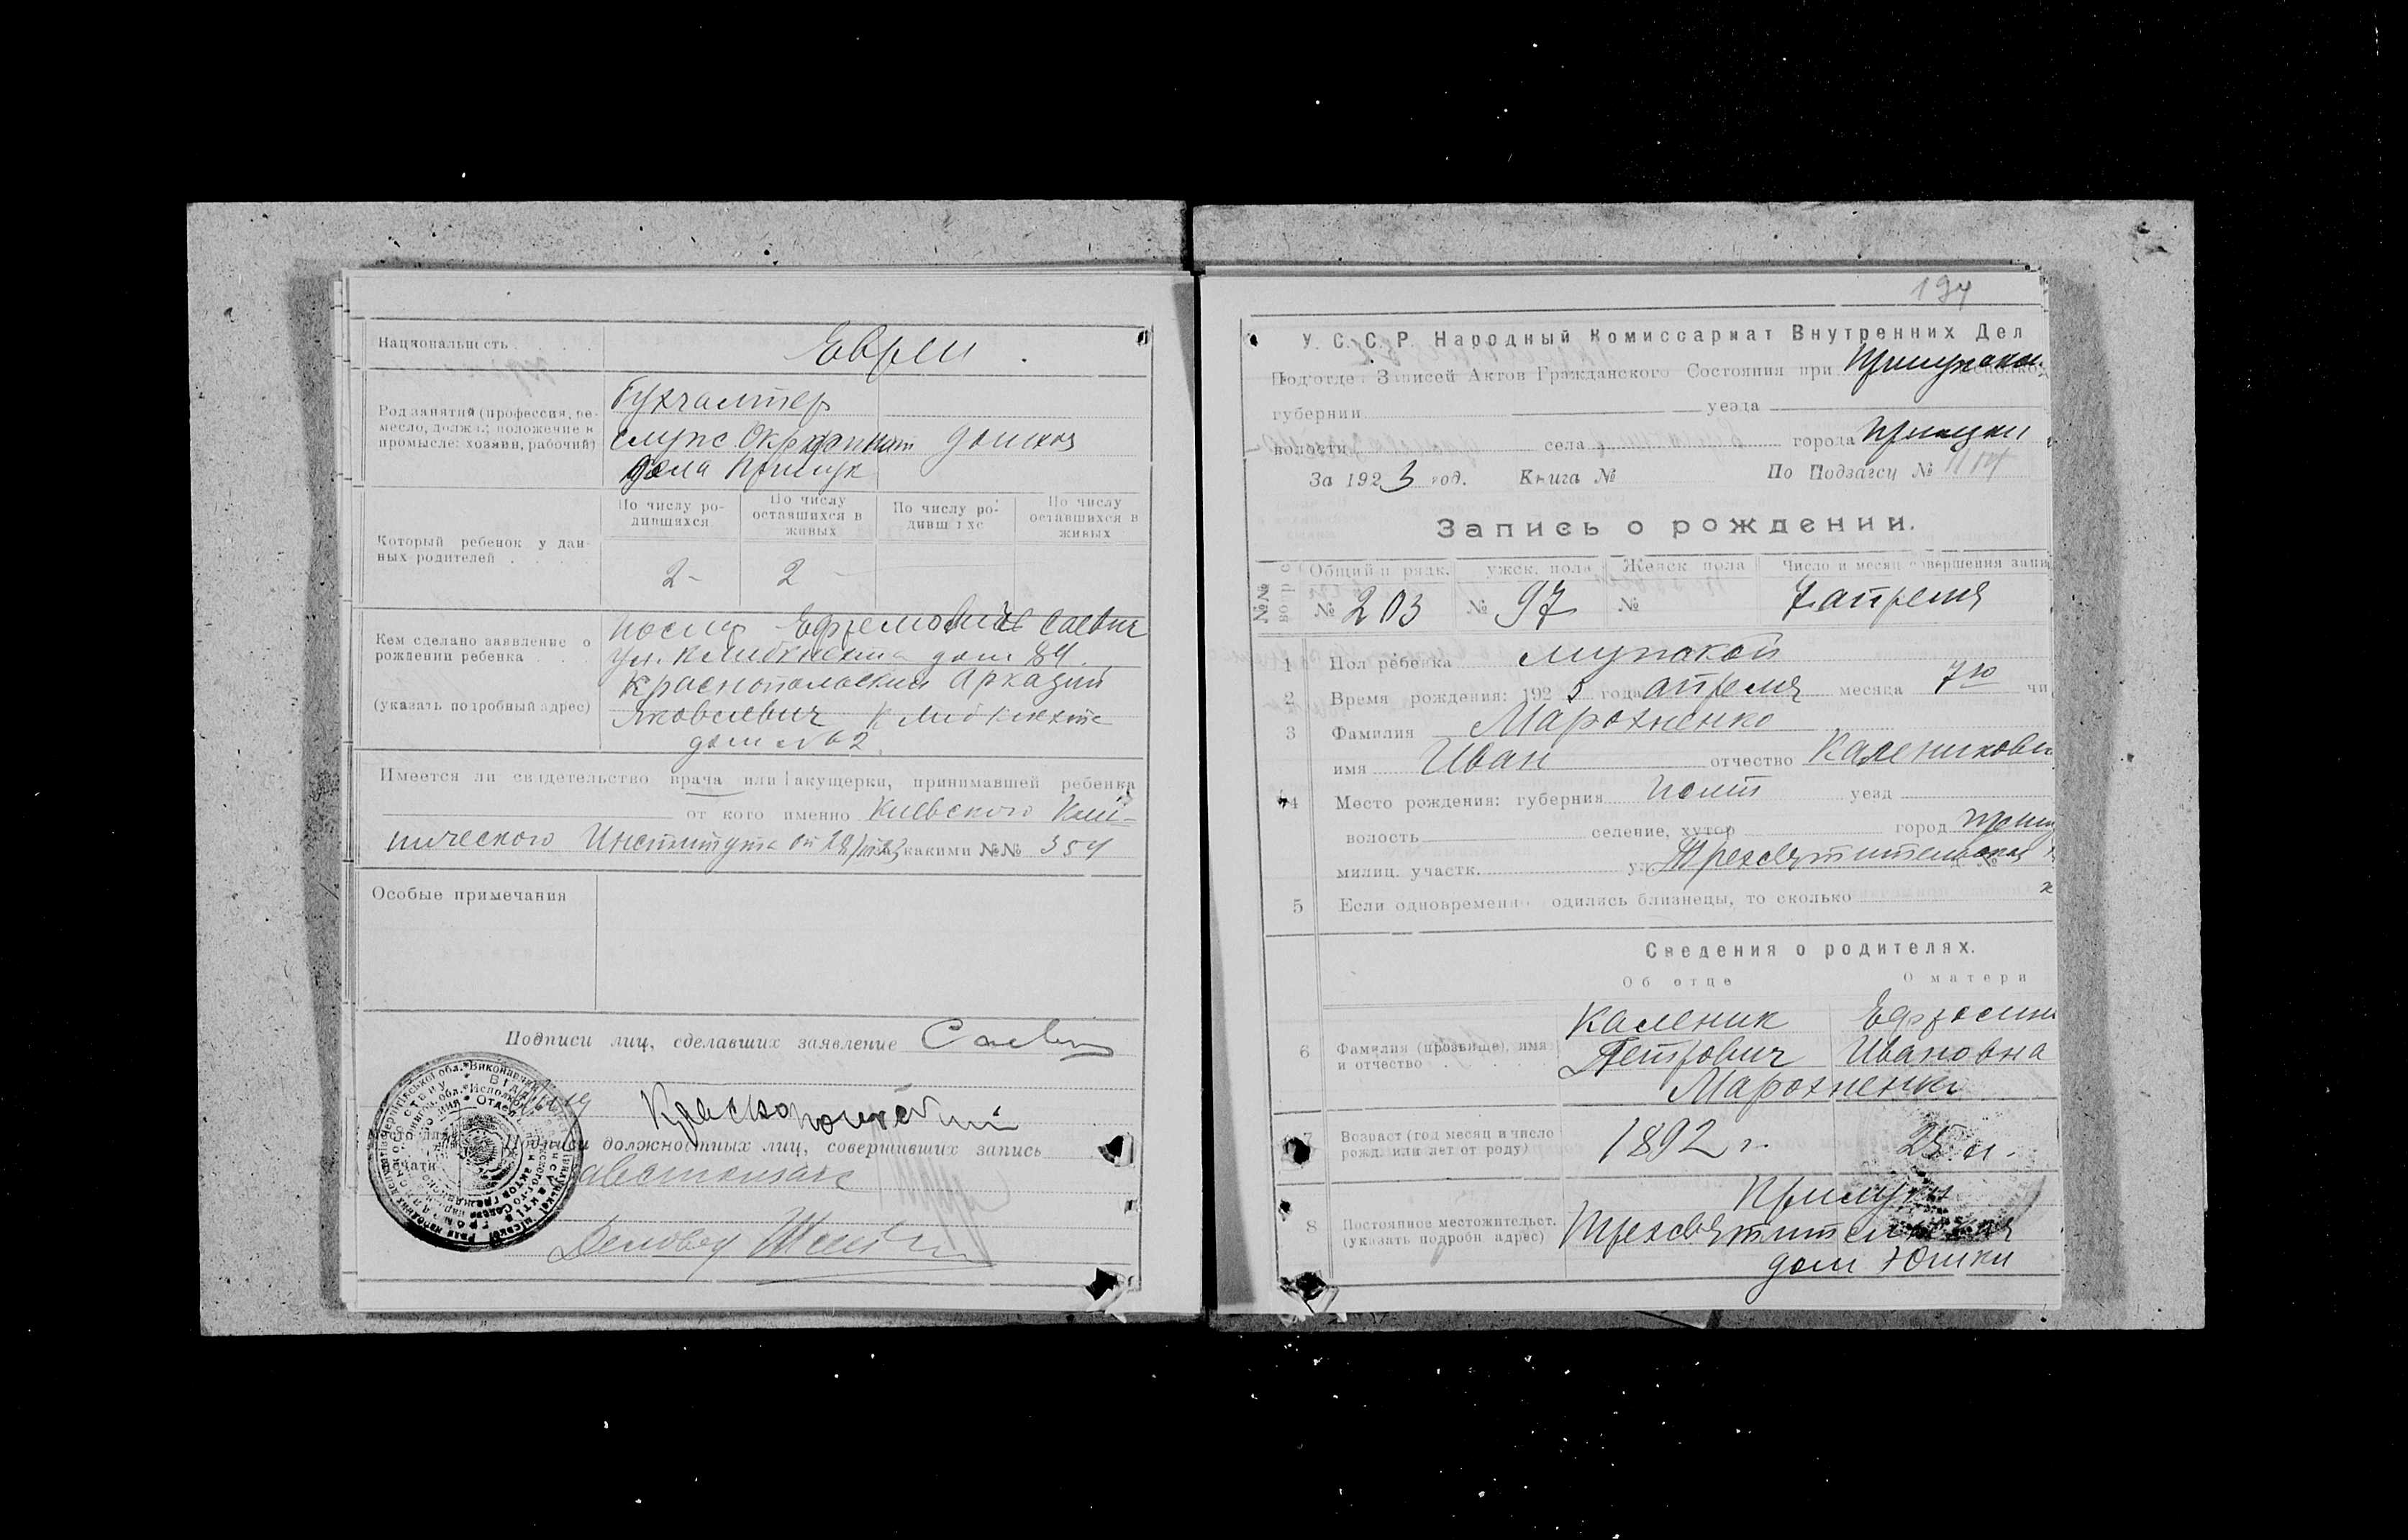 Национальность
Евреи
Род занятий (профессия, ре-
месло, должн.; положение в
промысле: хозяин, рабочий)
Бухгалтер
служ.
дома Прилук
домхоз
Который ребенок у дан-
ных родителей
По числу ро-
дившихся
По числу
оставшихся в
живых
По числу ро-
дивш хс
По числу
оставшихся в
живых
2 -
2 -
Кем сделано заявление о
рождении ребенка
(указать подробный адрес)
Ефремович Саевич
ул. К Либкнехта дом 84.
Краснопольский Аркадий
Яковлевич К Либкнехта
дом № 62.
Имеется ли свидетельство врача или акушерки, принимавшей ребенка
от кого именно Киевского Кли-
нического Института от 28/III 23 за какими №№ 354
Особые примечания
Подписи лиц, сделавших заявление Саевич
Краснопольский
Место для
печати
Подписи должностных лиц, совершивших запись
Деловод
194
У. С. С. Р. Народный Комиссариат Внутренних Дел
Под'отдел Записей Актов Гражданского Состояния при Прилукском исполко
губернии уезда
волости села города Прилуки
За 1923 год. Книга № По Подзагсу №
Запись о рождении.
№№
Общий п рядк.
№ 203
ужск. пола
№ 97
Женск пола
№
Число и месяц совершения запи
7 апреля
1 Пол ребенка мужской
2 Время рождения: 1923 года апреля месяца 7го чи
3 Фамилия Марохненко
имя Иван отчество Каленикови
4 Место рождения: губерния Полт уезд
волость селение, хутор город Прилу
милиц. участк. ул. Трехсвятительская д. №
5 Если одновременно родились близнецы, то сколько
Сведения о родителях.
Об отце
О матери
6 Фамилия (прозвище), имя
и отчество
Каленик
Петрович
Ефросини
Ивановна
Марохненко
7 Возраст (год месяц и число
рожд. или лет от роду)
1892 г.
25 л.
8 Постоянное местожительст.
(указать подробн адрес)
Прилуки
Трехсвятительская
дом Юшки